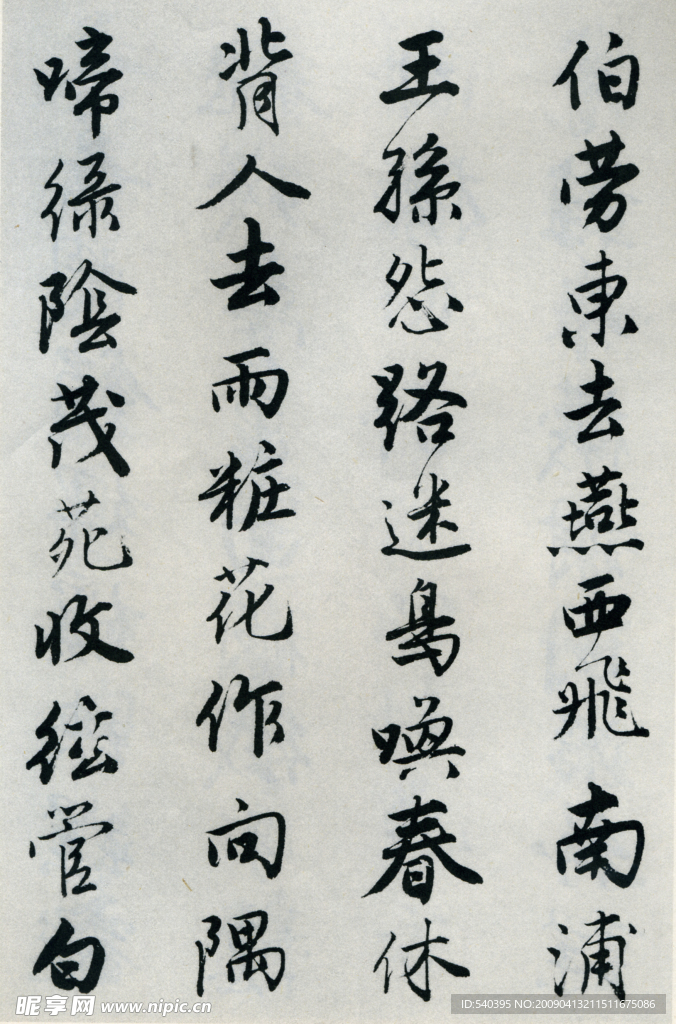 伯劳東去燕西飛南浦
王孫怨路迷鳥喚春休
背人去雨粧花作向隅
啼緑陰茂苑收絃管白
昵享网 www.nipic.cn
ID:540395 NO:20090413211511675086